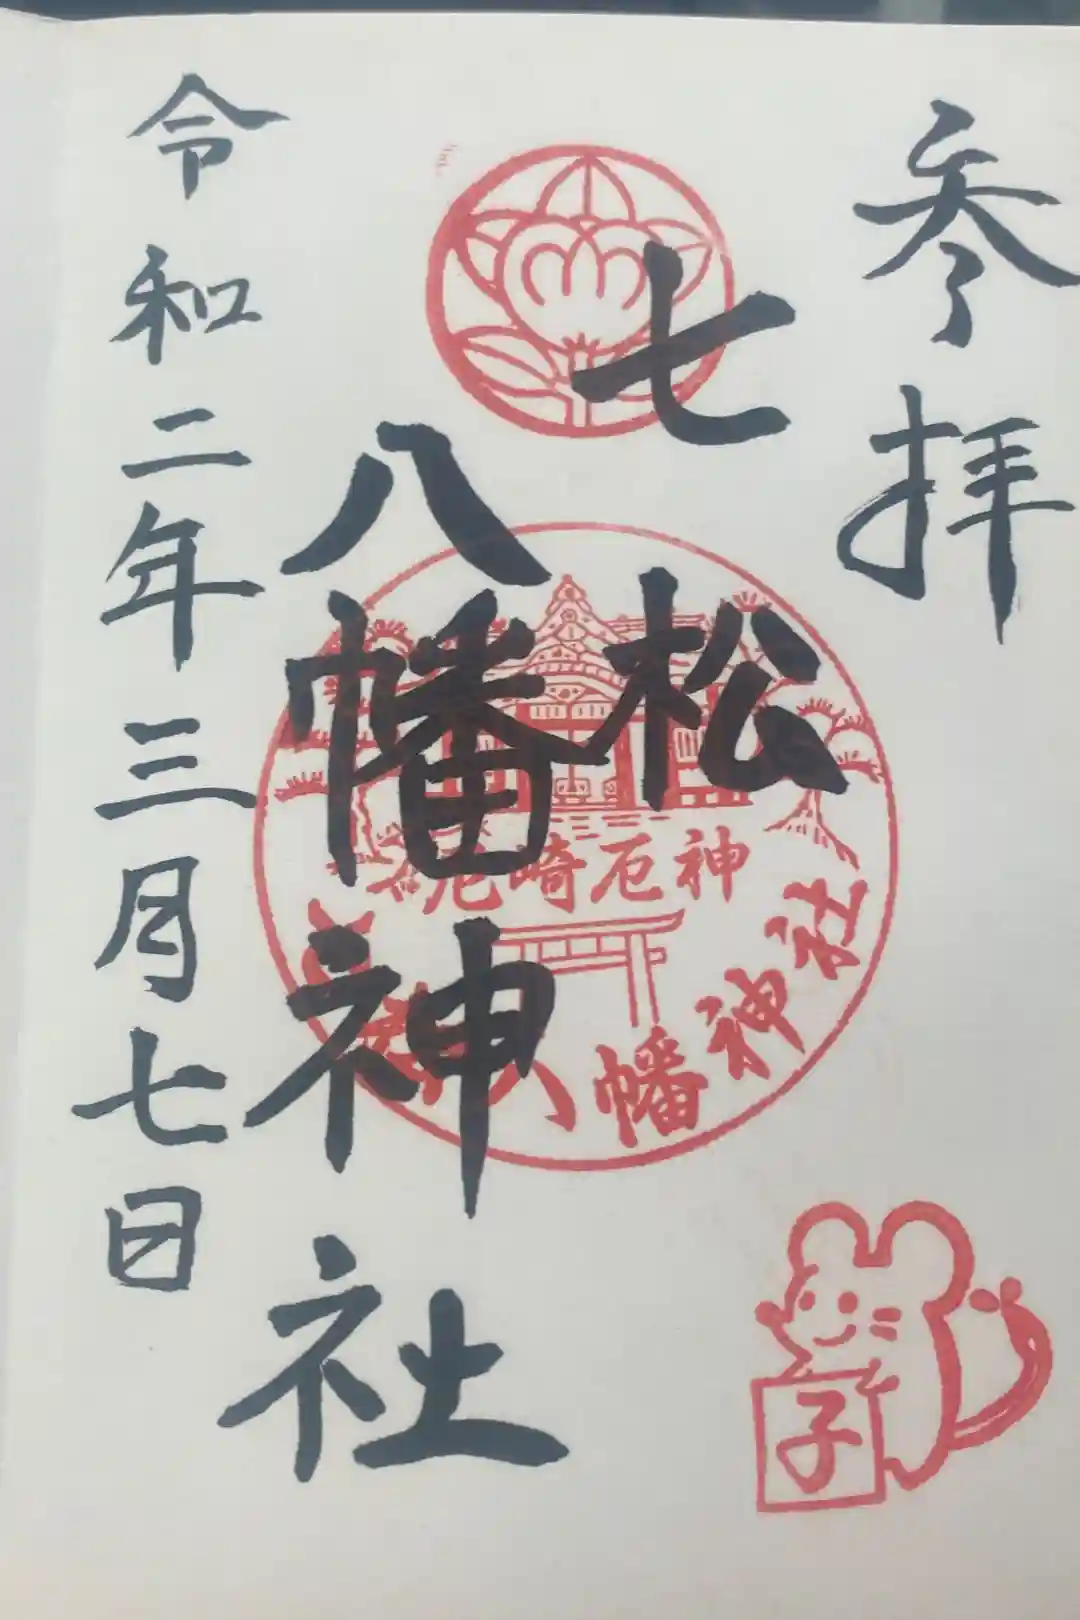 参拝
七松
八幡神社
令和二年三月七日
尼崎厄神
八幡神社
子